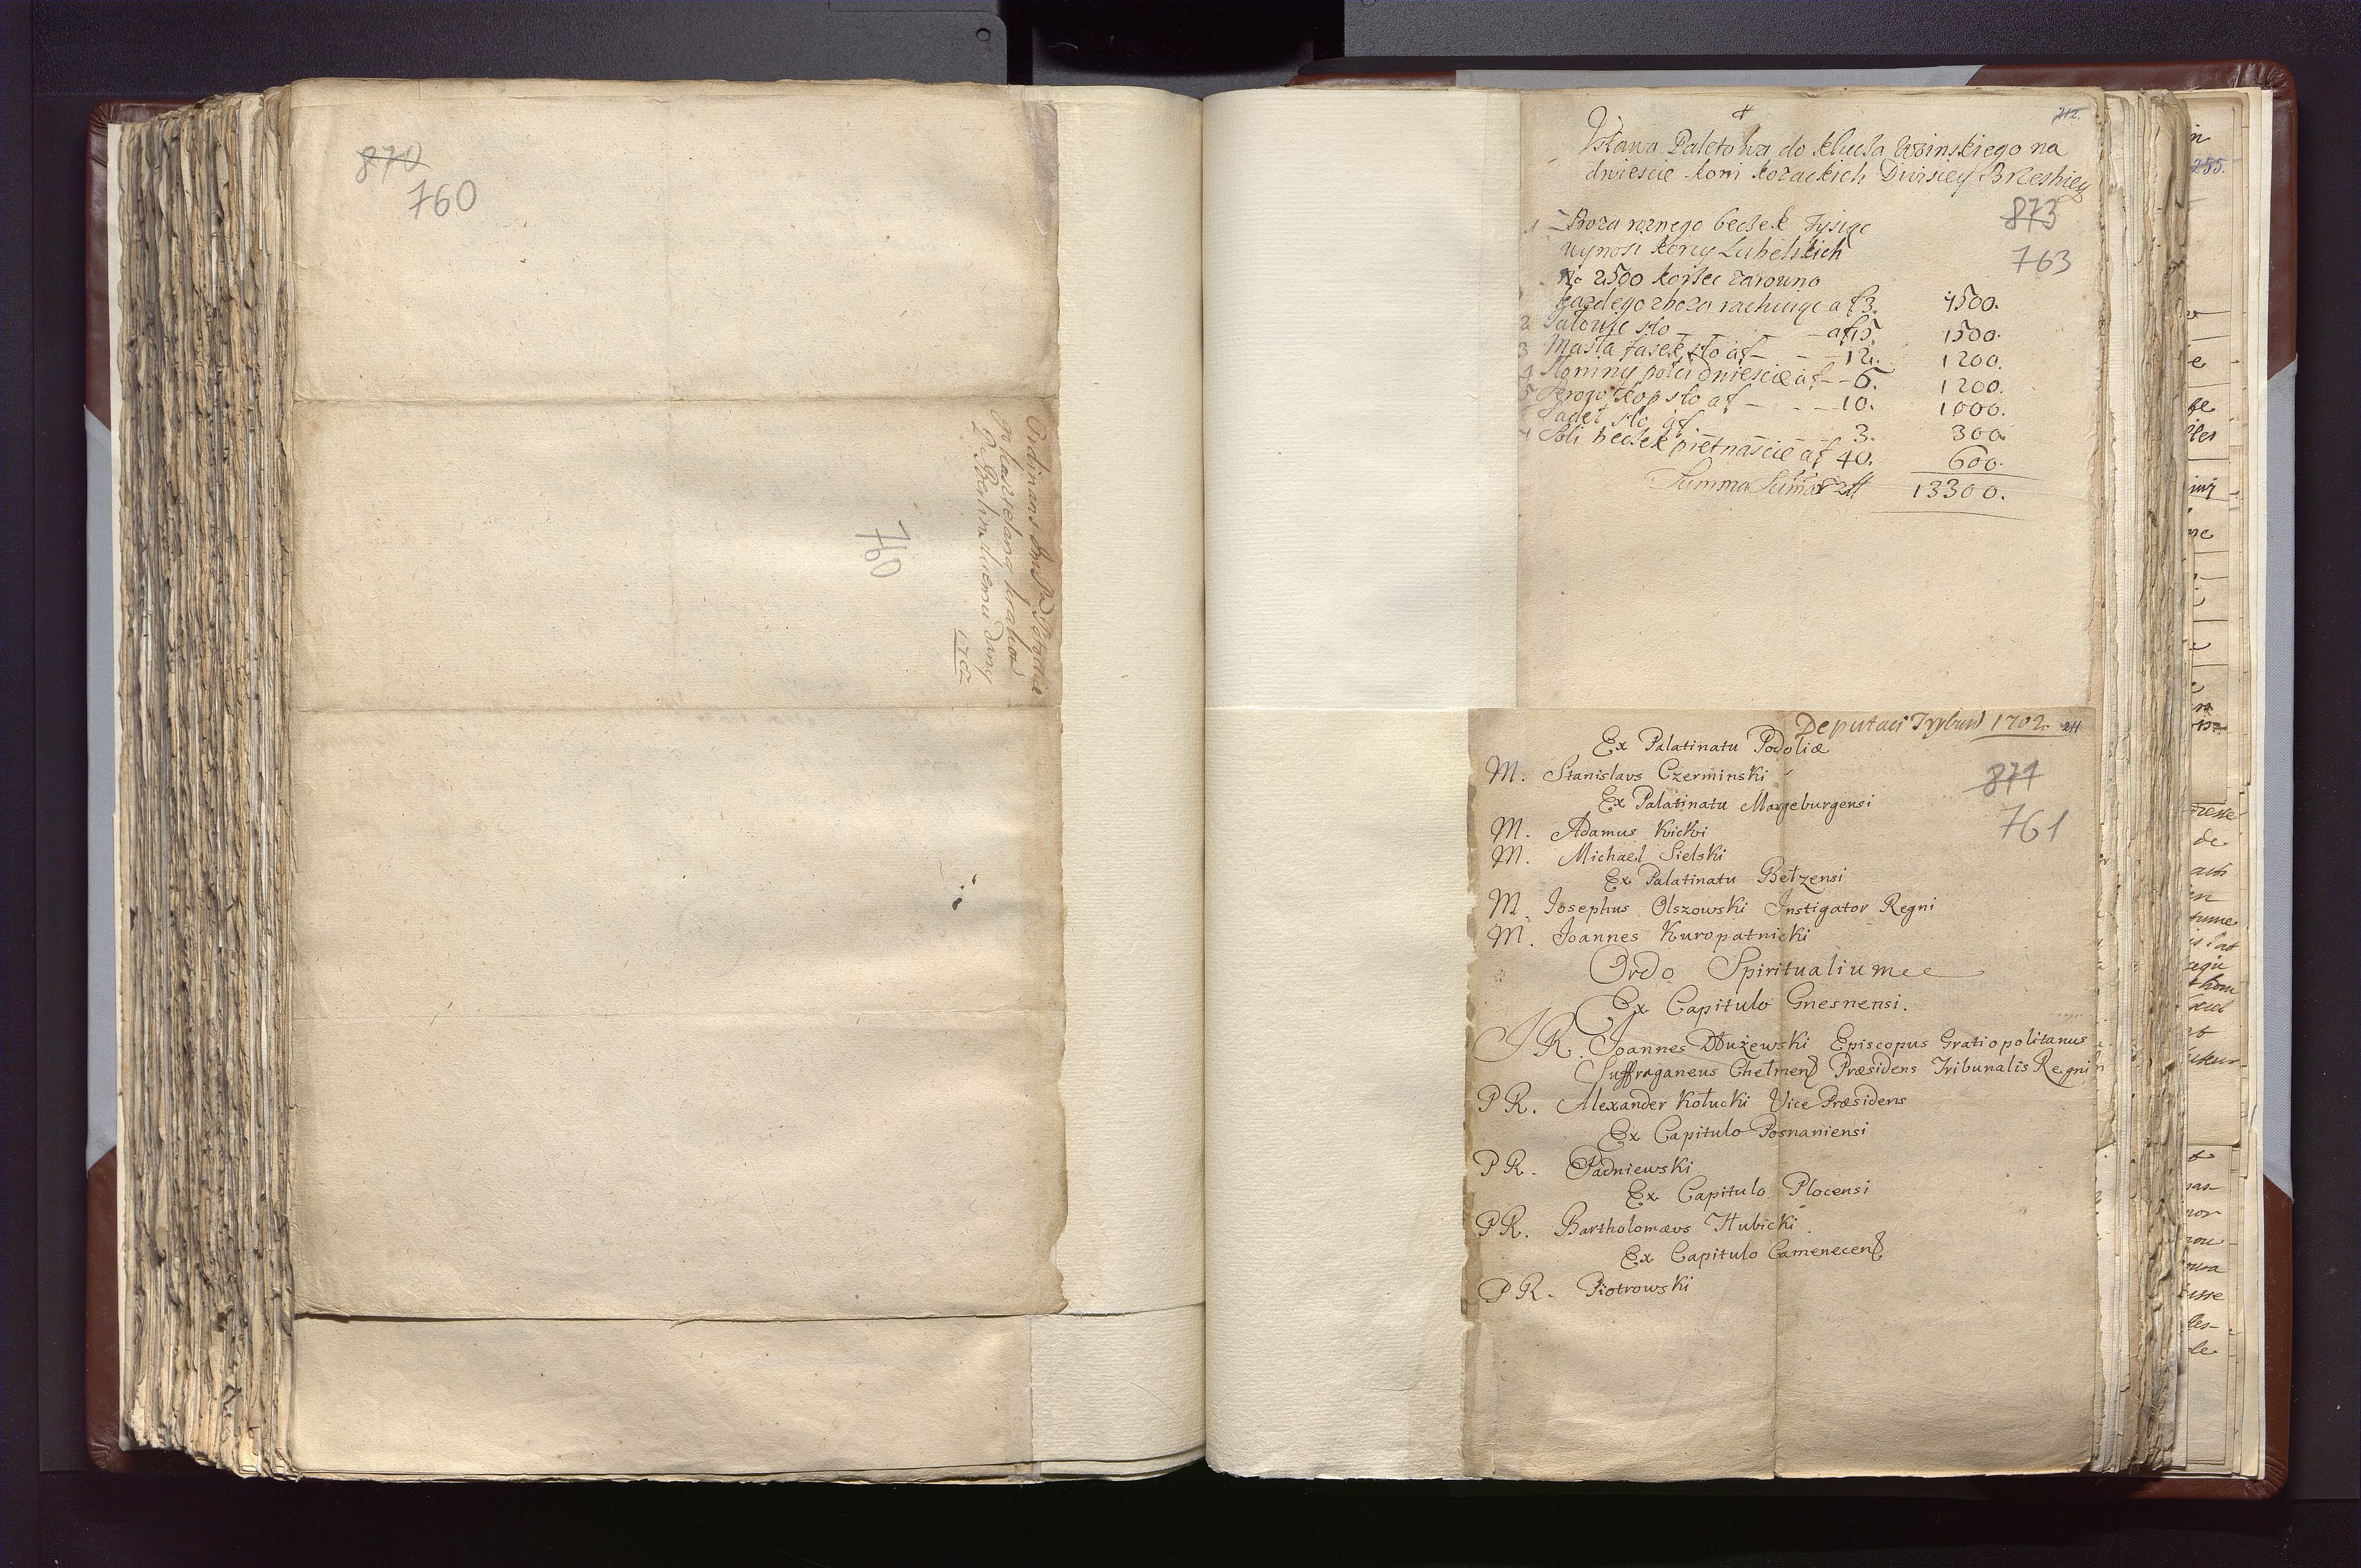 870
760
Ordinans
760
1702
212.
Ustawa Paletowa do klucza Uzinskiego na
dwiescie koni kozackich Diwisiey Brzeskiey
873
763
1 Zboza roznego beczek Tysiąc
wynosi korcy Lubelskich
No 2500 korzec zarowno
kazdego zboza rachuiąc a f 3. 7500.
2 Jałowic sto a f 15. 1500.
3 Masła fasek sto a f 12. 1200.
4 Słoniny połci dwiescie a f 6. 1200.
5 sto a f 10. 1000.
sto a f 3. 300
7 Soli beczek pietnascie a f 40. 600.
Summa 13300.
Deputaci Trybun 1702. 211
Ex Palatinatu Podoliæ
M. Stanislavs Czerminski
871
Ex Palatinatu Margeburgensi
761
M. Adamus Kicki
M. Michael Sielski
Ex Palatinatu Bełzensi
M. Josephus Olszowski Instigator Regni
M. Joannes Kuropatnicki
Ordo Spiritualium
Ex Capitulo Gnesnensi.
J R. Joannes Dłużewski Episcopus Gratiopolitanus
Suffraganeus Chełmens Præsidens Tribunalis Regni
P R. Alexander Kołucki Vice Præsidens
Ex Capitulo Posnaniensi
P R. Padniewski
Ex Capitulo Plocensi
P R. Bartholomævs Hubicki.
Ex Capitulo Camenecens
P R. Piotrowski
255.